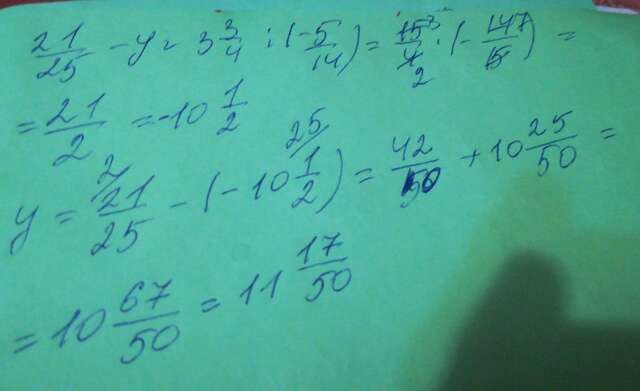 21/25 - y = 3 3/4 : (-5/14) = 15³/4₂ · (-14⁷/5) =
= 21/2 = -10 1/2
y = ²21/25 - (-10 ²⁵1/2) = 42/50 + 10 25/50 =
= 10 67/50 = 11 17/50